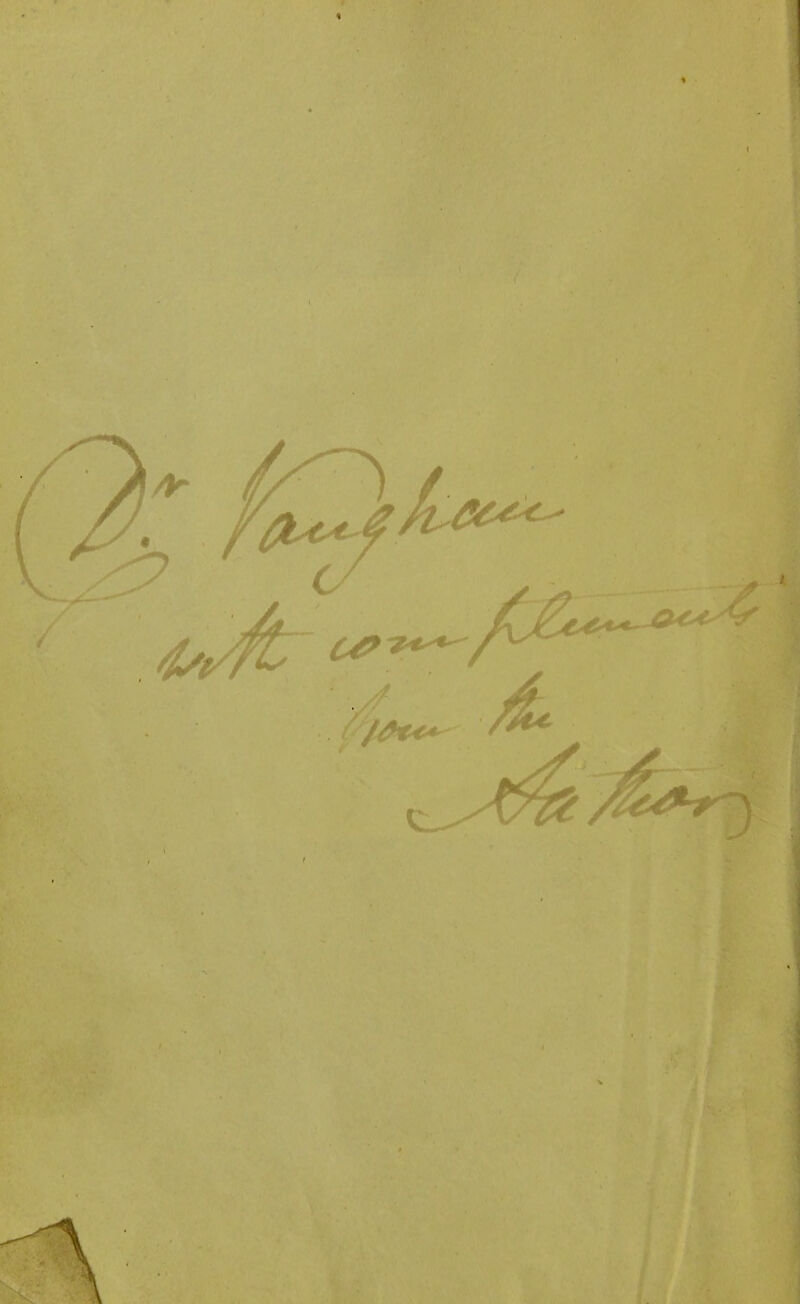 Dr. Vaughan
with compliments
from the
Author